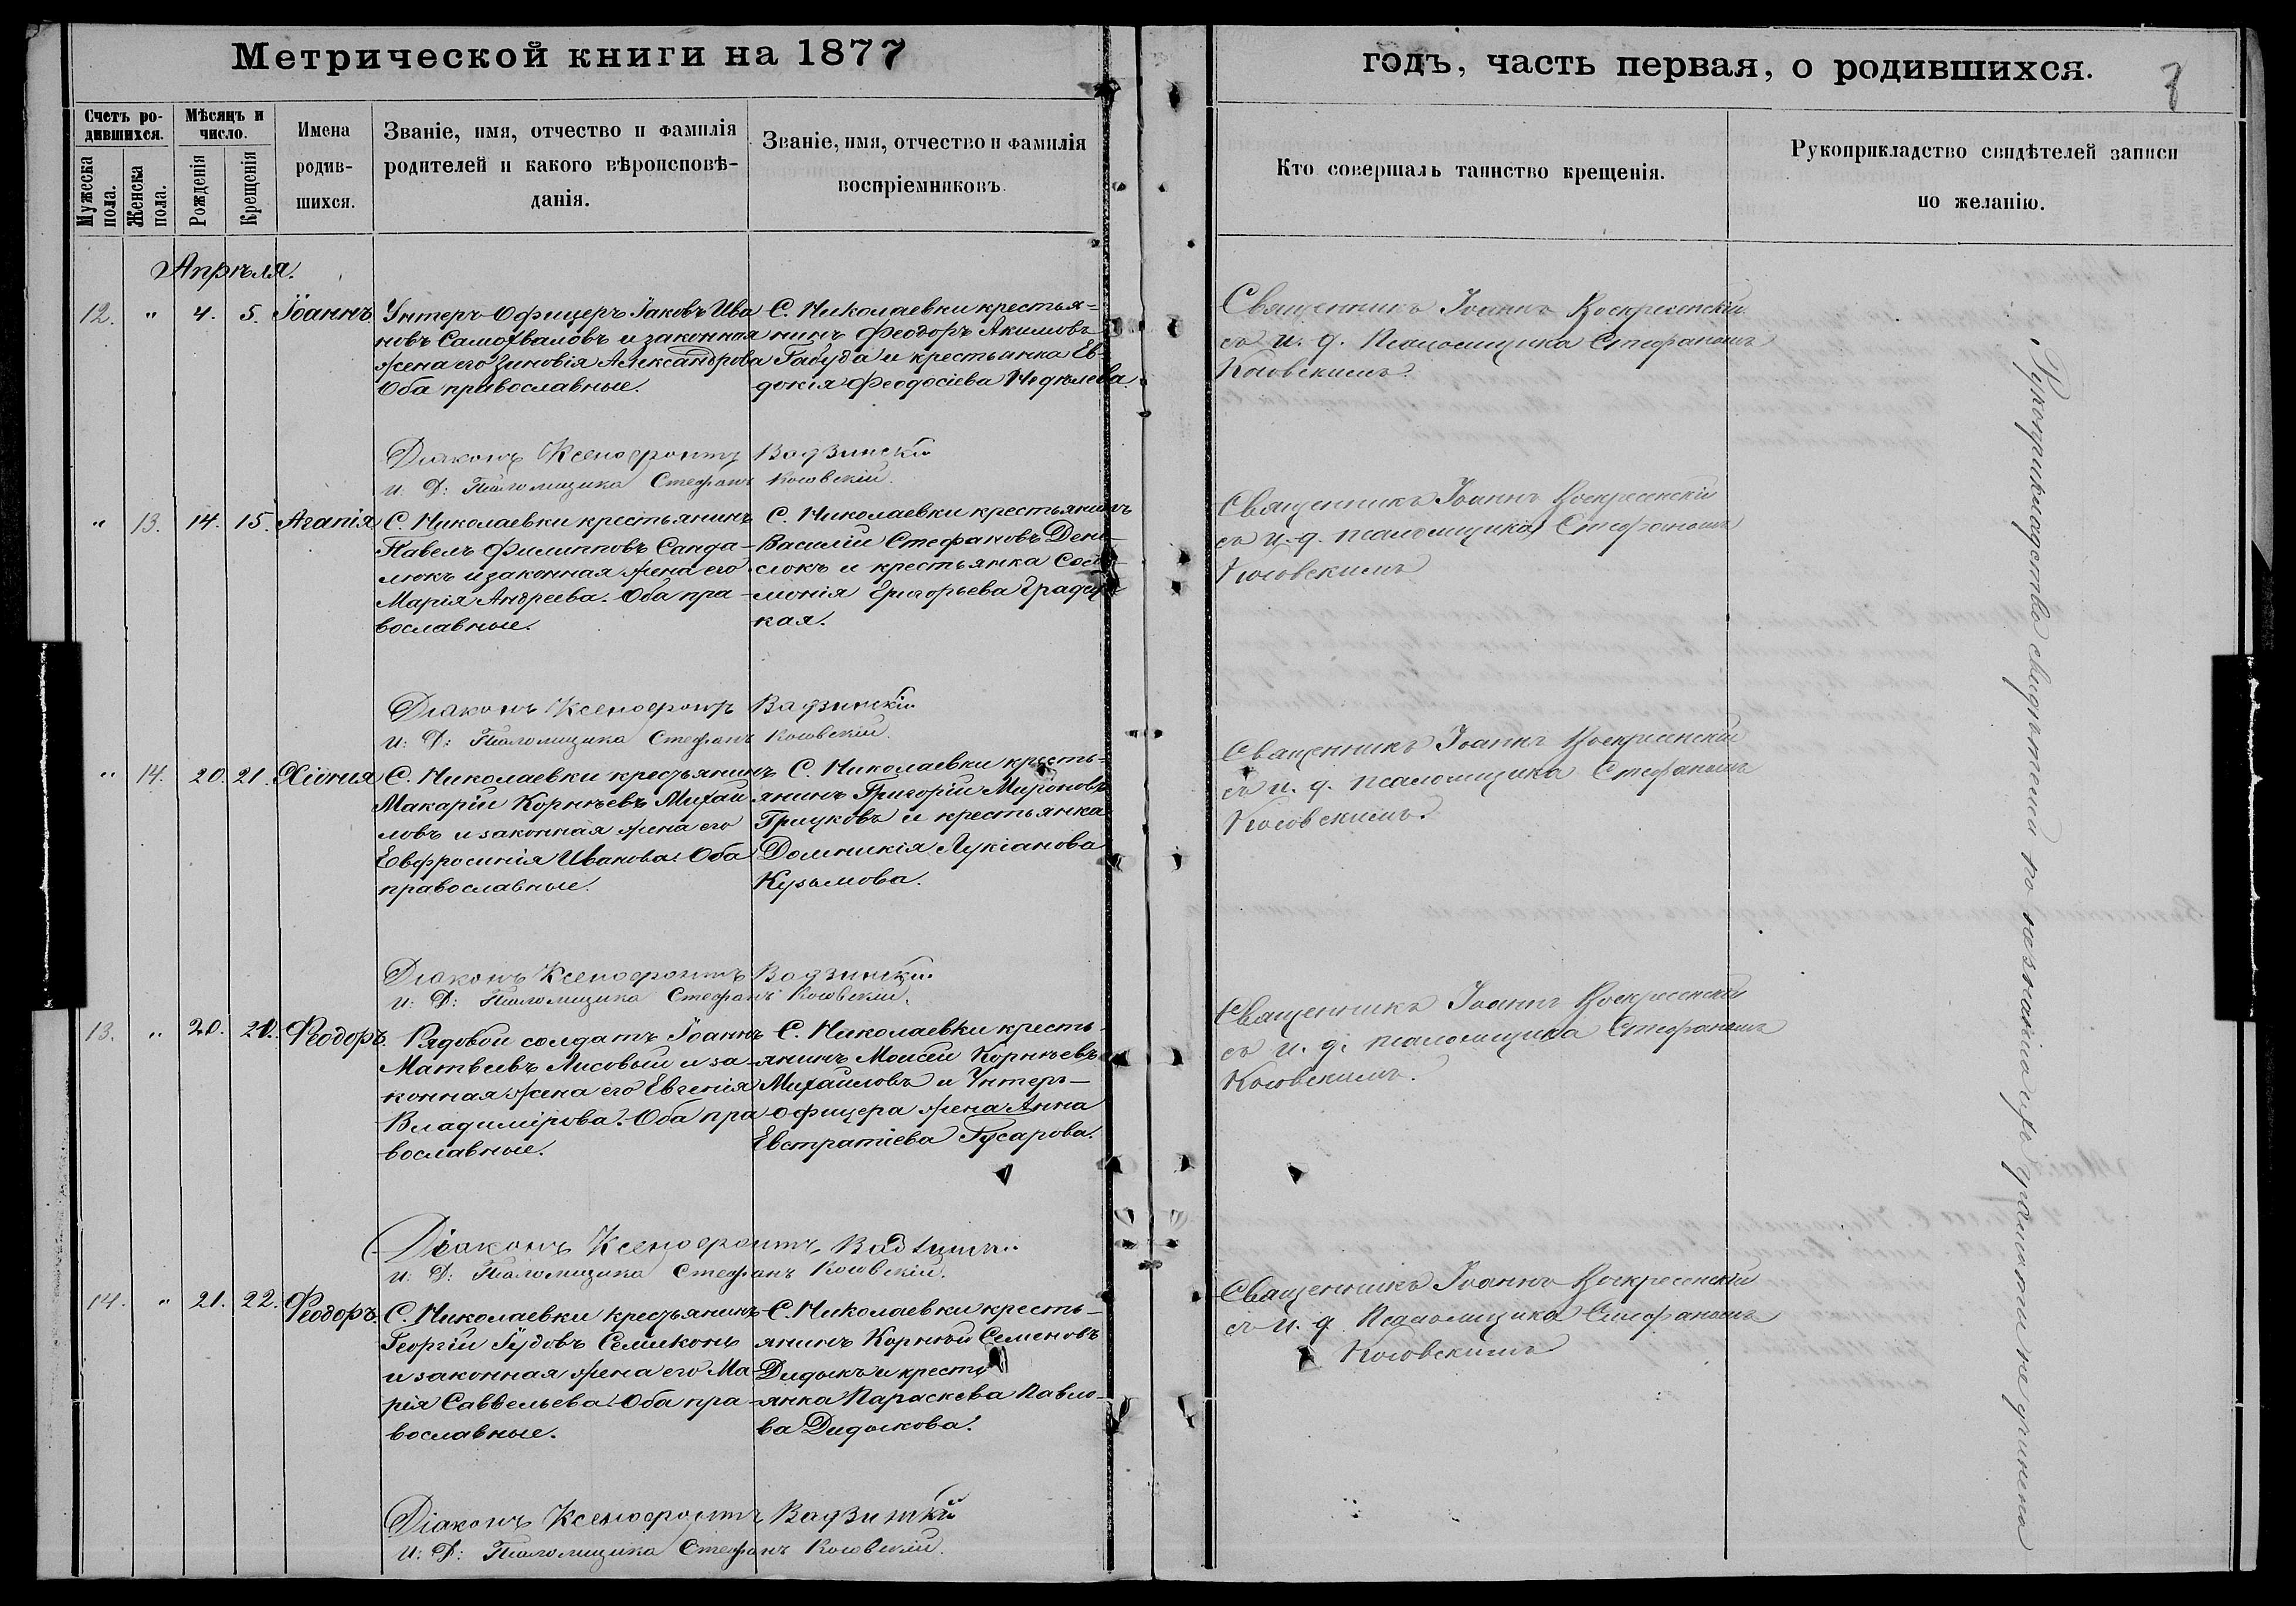 Метрической книги на 1877
годъ, часть первая, о родившихся.
7
Счетъ ро-
дившихся.
Мужеска пола.
Женска пола.
Мѣсяцъ и
число.
Рожденія
Крещенія
Имена
родив-
шихся.
Званіе, имя, отчество и фамилія
родителей и какого вѣроисповѣ-
данія.
Званіе, имя, отчество и фамилія
воспріемниковъ.
Кто совершалъ таинство крещенія.
Рукоприкладство свидѣтелей записи
по желанію.
Апрѣля.
12. " 4. 5. Іоаннъ
Унтеръ-Офицеръ Іаковъ Ива
новъ Самохваловъ и законная
жена его Зиновія Александрова
Оба православные.
С. Николаевки крестья-
нинъ Феодоръ Акимовъ
Габуда и крестьянка Ев-
докія Феодосіева Недѣлева.
Священникъ Іоаннъ Воскресенскій
съ и. д. Псаломщика Стефаномъ
Косовскимъ.
Діаконъ Ксенофонтъ Вадзинскій
И: Д: Псаломщика Стефанъ Косовскій.
" 13. 14. 15. Агапія
С. Николаевки крестьянинъ
Павелъ Филипповъ Санда-
люкъ и законная жена его
Марія Андреева. Оба пра-
вославные.
С. Николаевки крестьянинъ
Василій Стефановъ Дени-
сюкъ и крестьянка Соло-
монія Григорьева Градец-
кая.
Священникъ Іоаннъ Воскресенскій
съ и. д. псаломщика Стефаномъ
Косовскимъ
Діаконъ Ксенофонтъ Вадзинскій
И: Д: Псаломщика Стефанъ Косовскій.
" 14. 20. 21. Хіонія
С. Николаевки крестьянинъ
Макарій Корнѣевъ Михаи
ловъ и законная жена его
Евфросинія Иванова. Оба
православные.
С. Николаевки кресть-
янинъ Григорій Мироновъ
Грицковъ и крестьянка
Домникія Лукіанова
Кузьмова.
Священникъ Іоаннъ Воскресенскій
съ и. д. псаломщика Стефаномъ
Косовскимъ.
Діаконъ Ксенофонтъ Вадзинскій
И: Д: Псаломщика Стефанъ Косовскій.
13. " 20. 21. Феодоръ.
Рядовой солдатъ Іоаннъ
Матвѣевъ Лисовый и за-
конная жена его Евгенія
Владимірова. Оба пра
вославные.
С. Николаевки кресть-
янинъ Моисей Корнѣевъ
Михаиловъ и Унтеръ-
офицера жена Анна
Евстратіева Гусарова.
Священникъ Іоаннъ Воскресенскій
съ и. д. псаломщика Стефаномъ
Косовскимъ.
Діаконъ Ксенофонтъ Вадзинскій
И: Д: Псаломщика Стефанъ Косовскій.
14. " 21. 22. Феодоръ.
С. Николаевки крестьянинъ
Георгій Іудовъ Семиконь
и законная жена его Ма
рія Саввельева. Оба пра-
вославные.
С. Николаевки кресть-
янинъ Корнѣй Семеновъ
Дидыкъ и кресть
янка Параскева Павло-
ва Дидыкова.
Священникъ Іоаннъ Воскресенскій
съ и. д. Псаломщика Стефаномъ
Косовскимъ
Діаконъ Ксенофонтъ Вадзинскій
И: Д: Псаломщика Стефанъ Косовскій.
Рукоприкладства свидѣтелей по незнанію ихъ грамоты не учинено